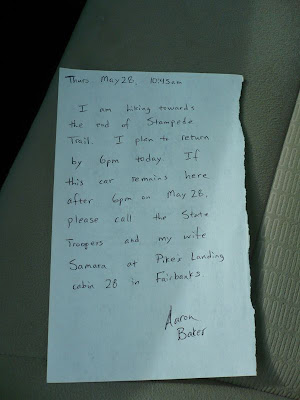 Thurs. May 28, 10:45am
I am hiking towards
the end of Stampede
Trail. I plan to return
by 6pm today. If
this car remains here
after 6pm on May 28,
please call the State
Troopers and my wife
Samara at Pike's Landing
cabin 28 in Fairbanks.
Aaron
Baker